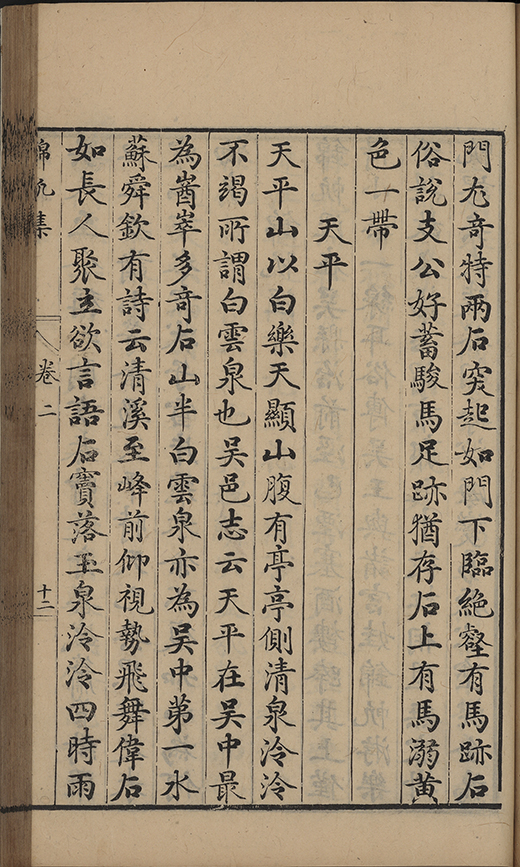 門尤奇特兩石突起如門下臨絶壑有馬跡石
俗説支公好蓄駿馬足跡猶存石上有馬溺黄
色一帶
天平
天平山以白樂天顯山腹有亭亭側清泉泠泠
不竭所謂白雲泉也吳邑志云天平在吳中最
為崷崒多竒石山半白雲泉亦為吳中第一水
蘇舜欽有詩云清溪至峰前仰視勢飛舞偉石
如長人聚立欲言語石竇落玉泉泠泠四時雨
錦帆集
卷二
十二